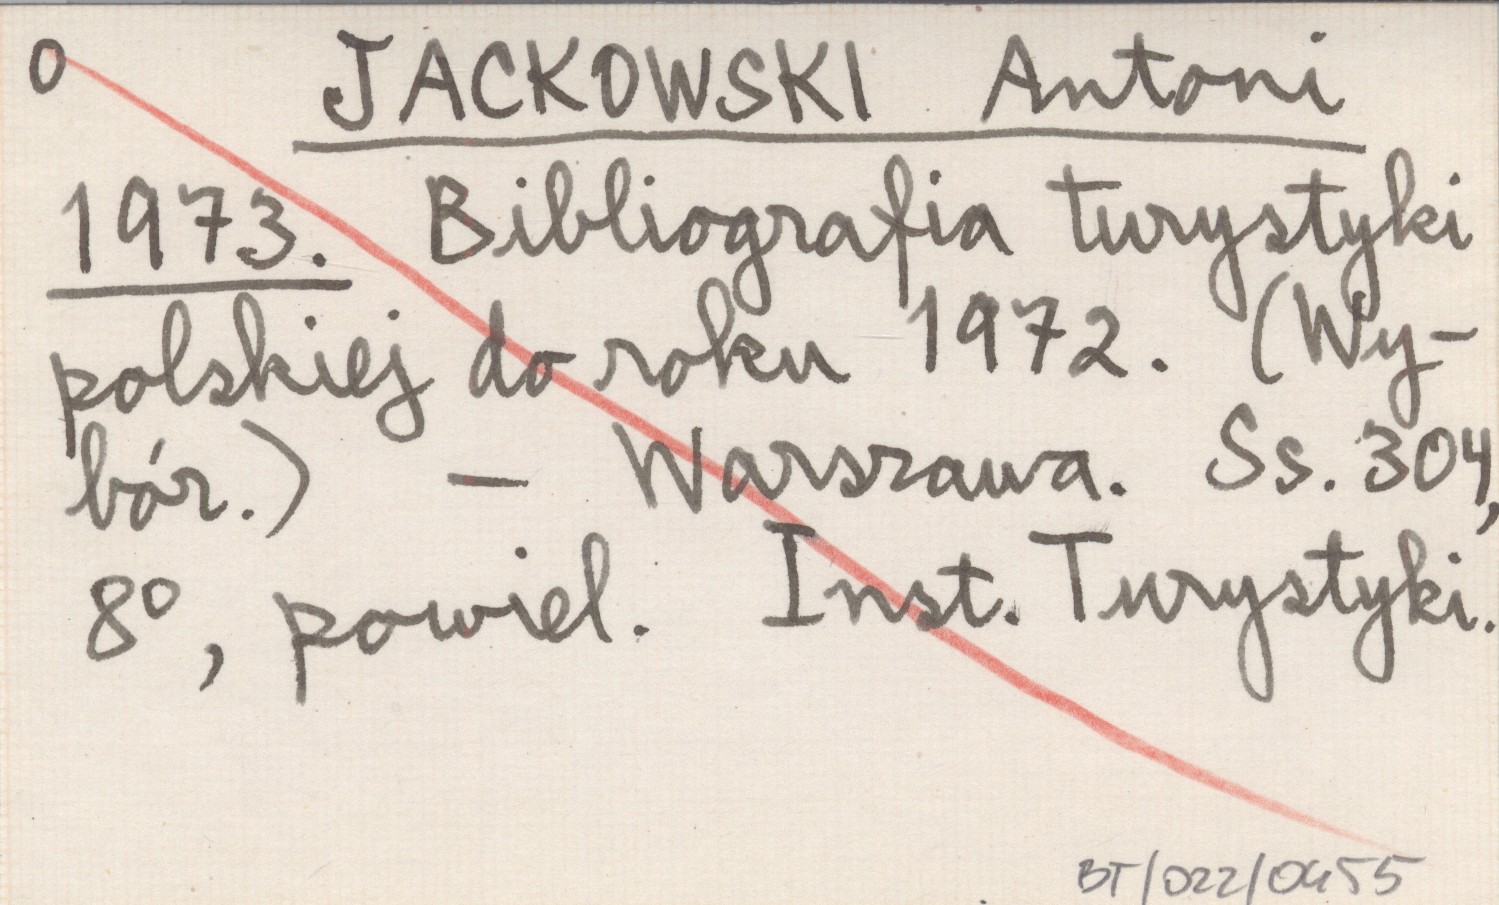 O JACKOWSKI Antoni
1973. Bibliografia turystyki
polskiej do roku 1972. (Wy-
bór.) — Warszawa. Ss. 304,
8º, powiel. Inst. Turystyki.
BT/022/0455